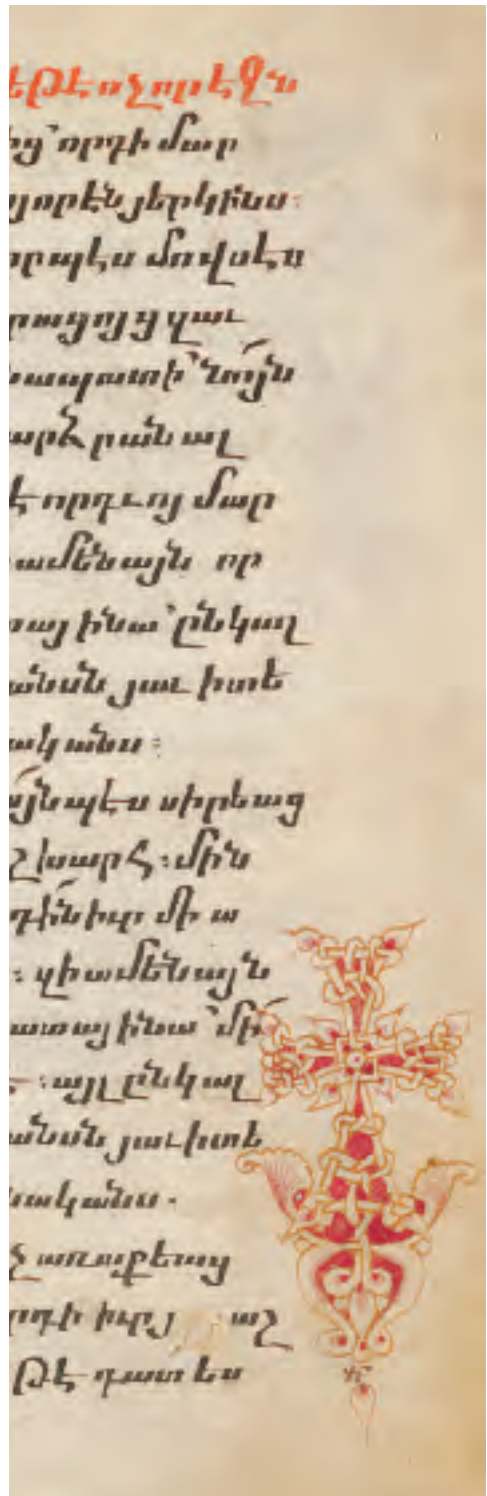 եթէ ոչ որ էջն
ից՝ որդի մար
յորէն յերկինս։
որպէս մովսէս
րացոյց զաւ
նապատի՝ նոյն
արձրանալ
է որդւոյ մար
ամենայն որ
տայ ինա՝ ընկալ
անսն յաւիտե
ականս։
այնպէս սիրեաց
շխարհ։ մին
դին իւր մի ա
։ զի ամենայն
ատայ ինա՝ մի
։ այլ ընկալ
անսն յաւիտե
նականս.
չ առաքեաց
որդի իւր յ աշ
թէ դատես